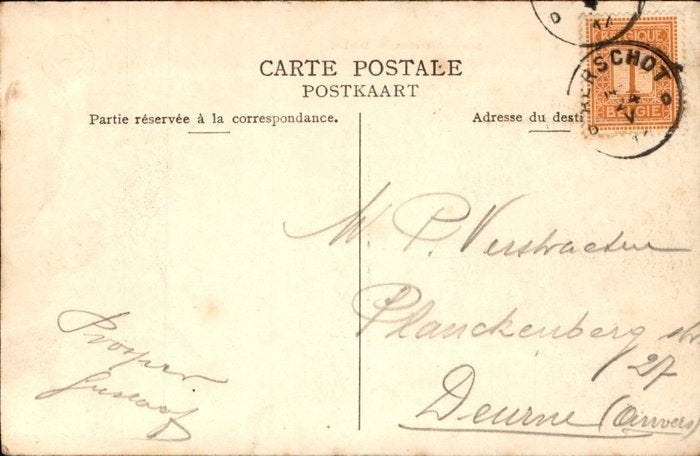 CARTE POSTALE
POSTKAART
Partie réservée à la correspondance.
Adresse du desti
BELGIQUE
1
BELGIË
AERSCHOT
M. P. Verstraeten
Planckenberg str
27
Deurne (Anvers)
Prosper
Gustaaf